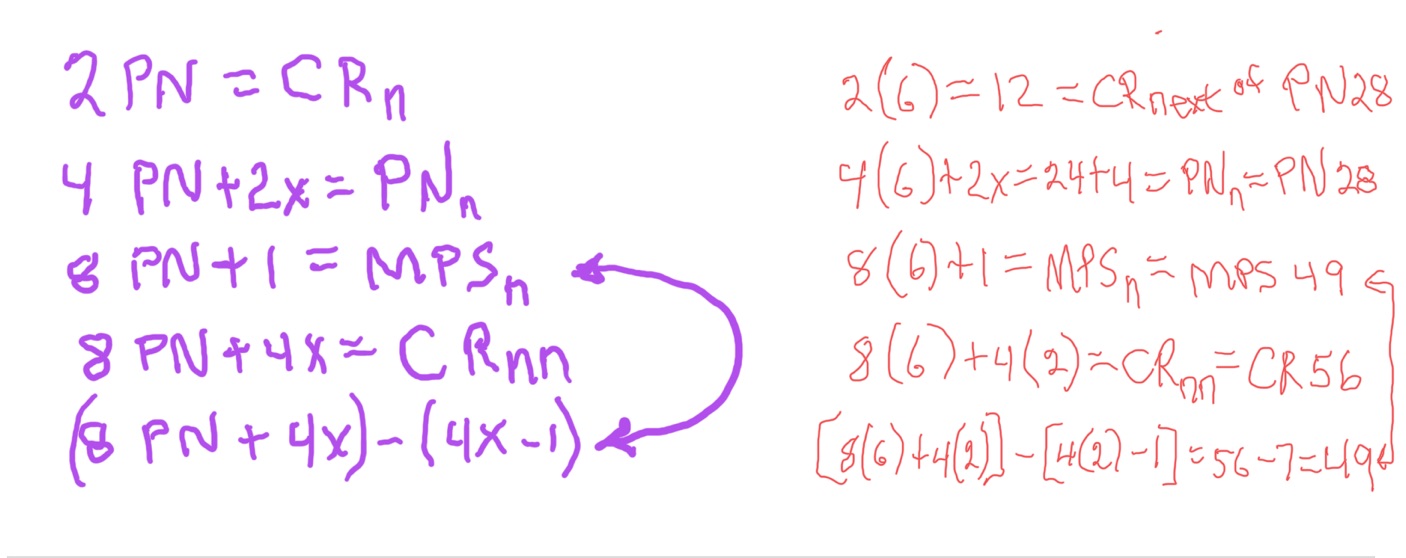 2 PN = CRn
4 PN+2x = PNn
8 PN+1 = MPSn
8 PN+4x = CRnn
(8 PN + 4x) - (4x-1)
2(6) = 12 = CRnext of PN28
4(6)+2x=24+4 = PNn = PN28
8(6)+1 = MPSn = MPS 49
8(6)+4(2) = CRnn = CR56
[8(6)+4(2)] - [4(2)-1] = 56-7=49